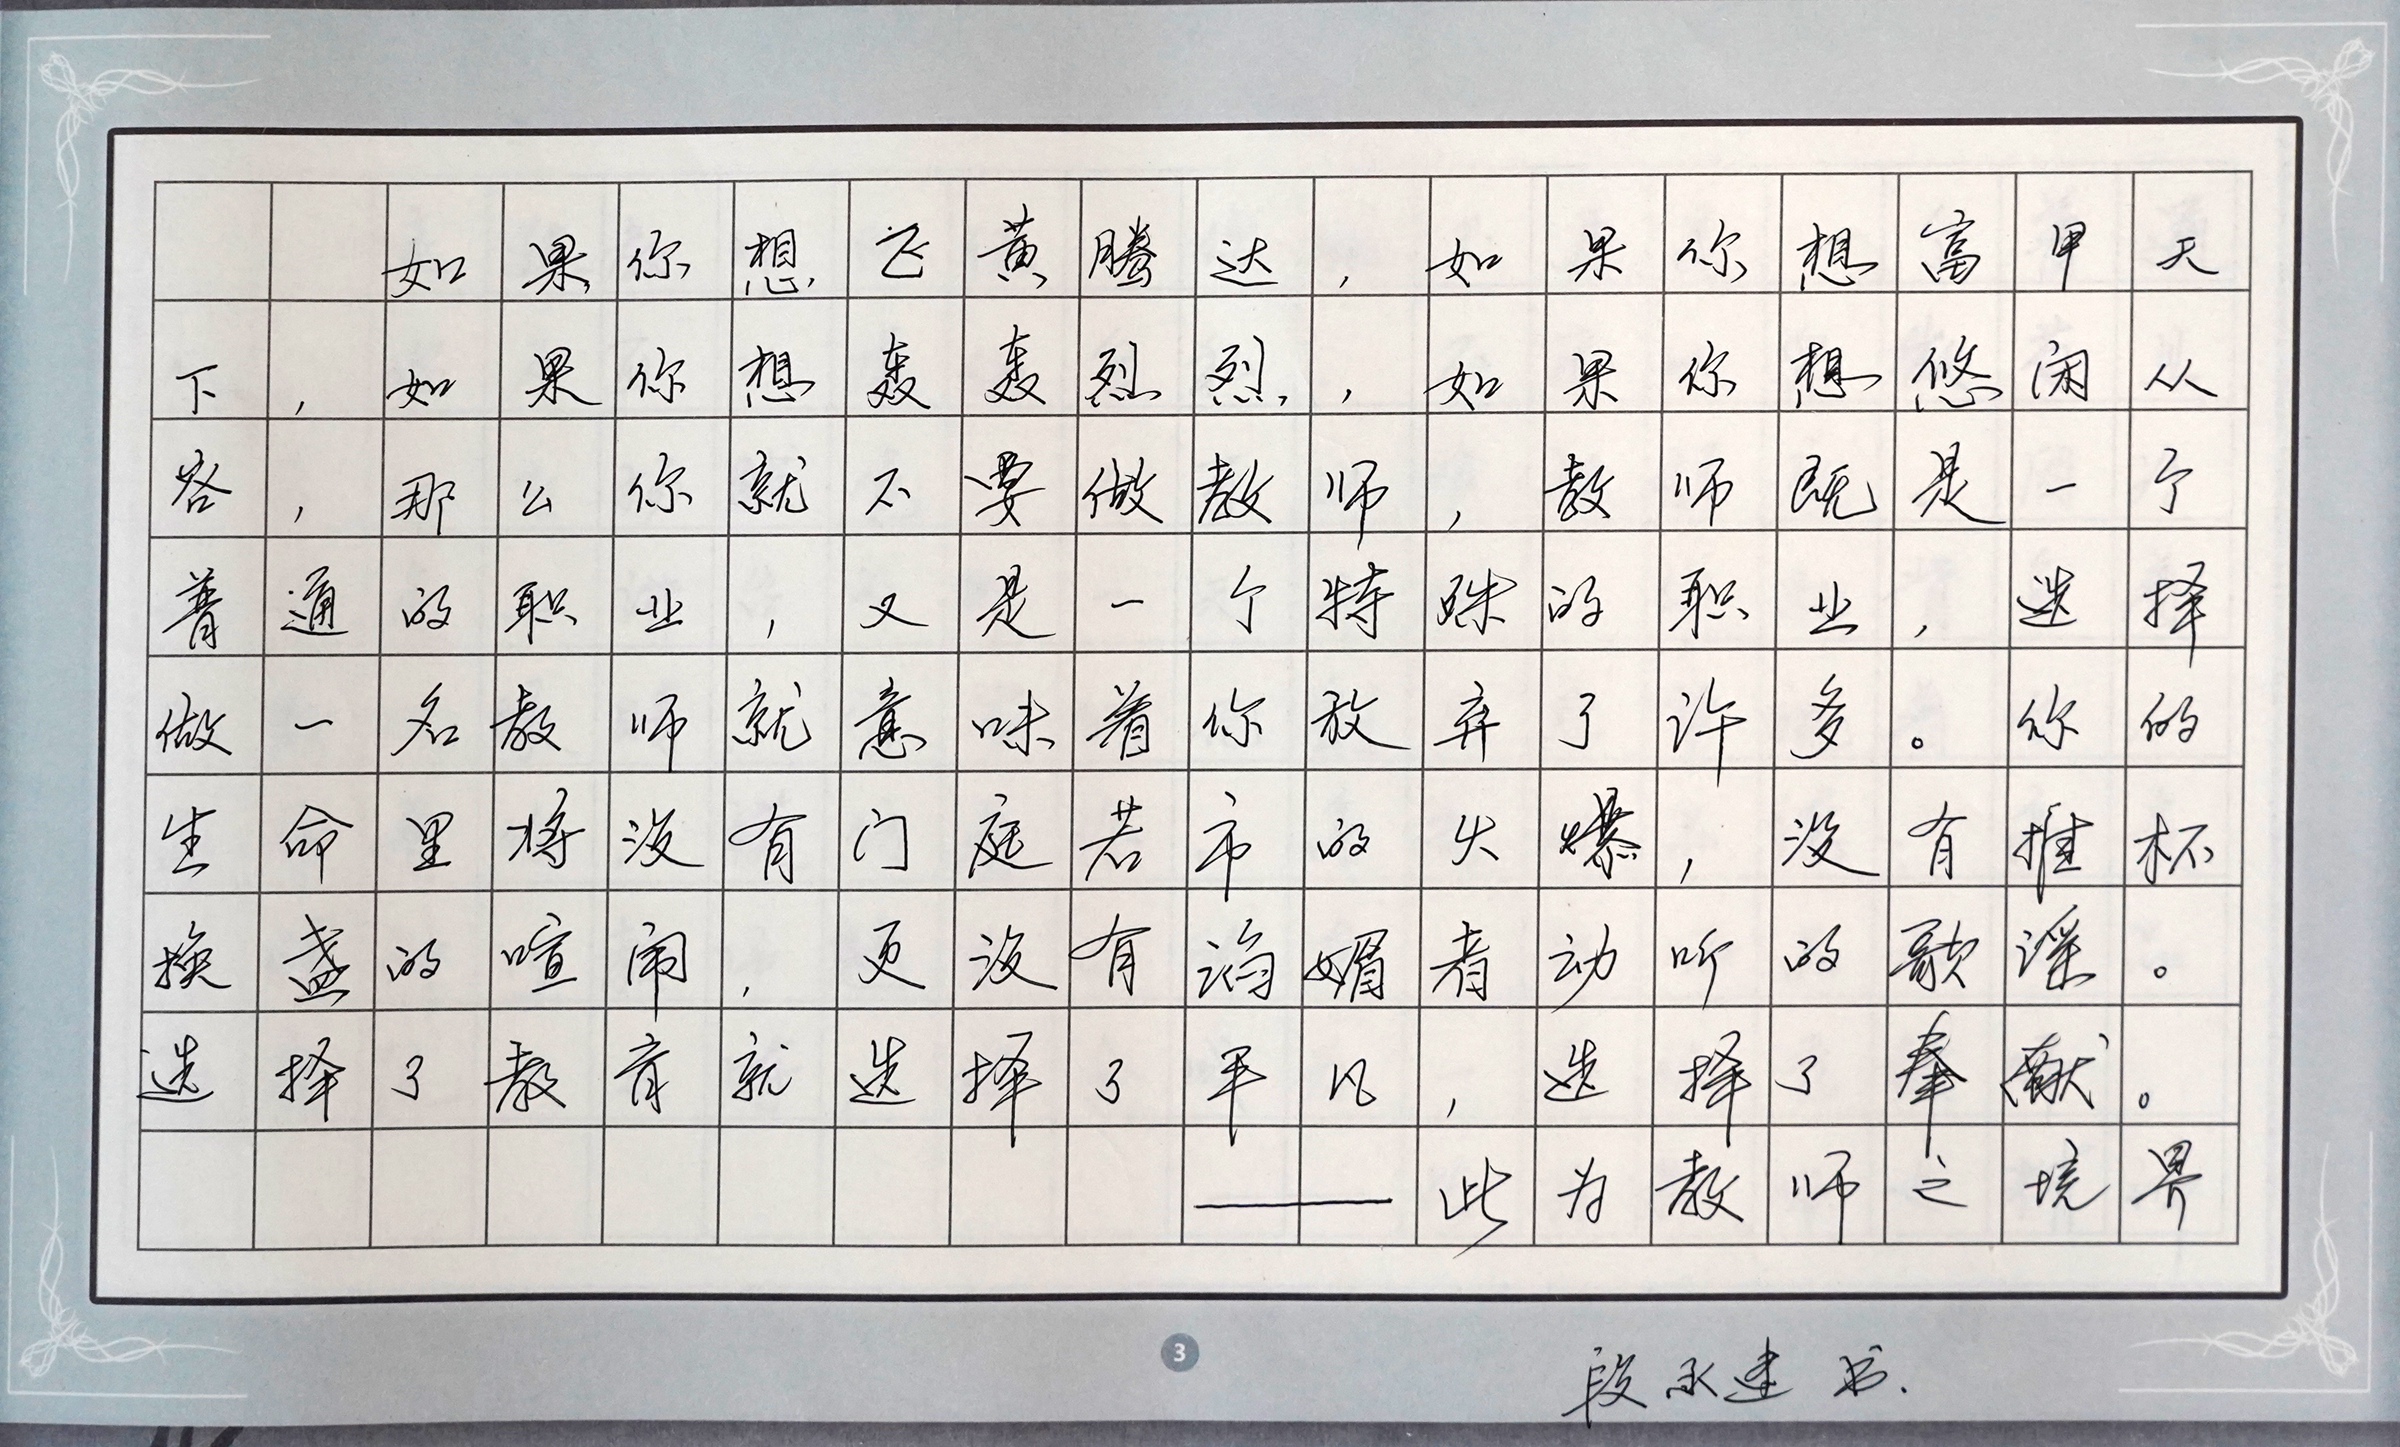 如果你想飞黄腾达，如果你想富甲天
下，如果你想轰轰烈烈，如果你想悠闲从
容，那么你就不要做教师，教师既是一个
普通的职业，又是一个特殊的职业，选择
做一名教师就意味着你放弃了许多。你的
生命里将没有门庭若市的火爆，没有推杯
换盏的喧闹，更没有谄媚者动听的歌谣。
选择了教育就选择了平凡，选择了奉献。
——此为教师之境界
3
段永建书.